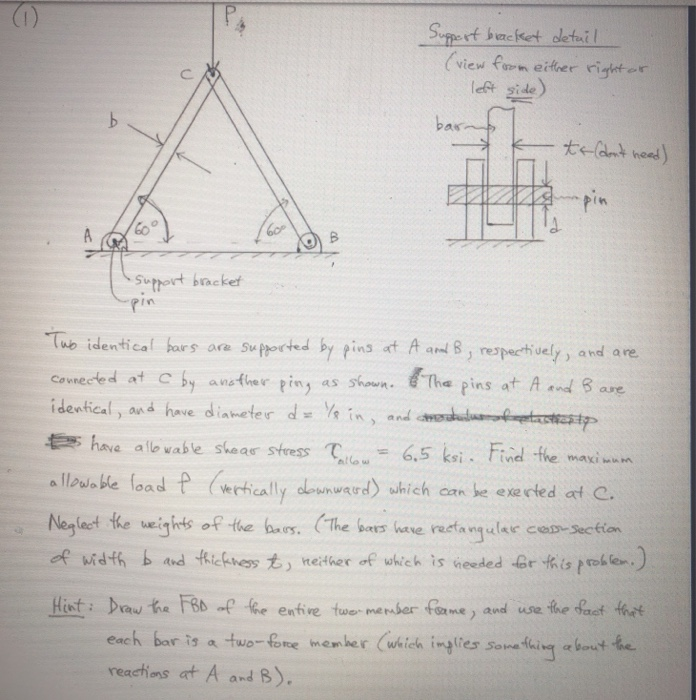 (1)
P
Support bracket detail
(view from either right or
left side)
C
b
bar
t ← (don't need)
pin
d
60°
60°
A
B
support bracket
pin
Two identical bars are supported by pins at A and B, respectively, and are
connected at C by another pin, as shown. The pins at A and B are
identical, and have diameter d = 1/8 in, and
have allowable shear stress τallow = 6.5 ksi. Find the maximum
allowable load P (vertically downward) which can be exerted at C.
Neglect the weights of the bars. (The bars have rectangular cross-section
of width b and thickness t, neither of which is needed for this problem.)
Hint: Draw the FBD of the entire two-member frame, and use the fact that
each bar is a two-force member (which implies something about the
reactions at A and B).